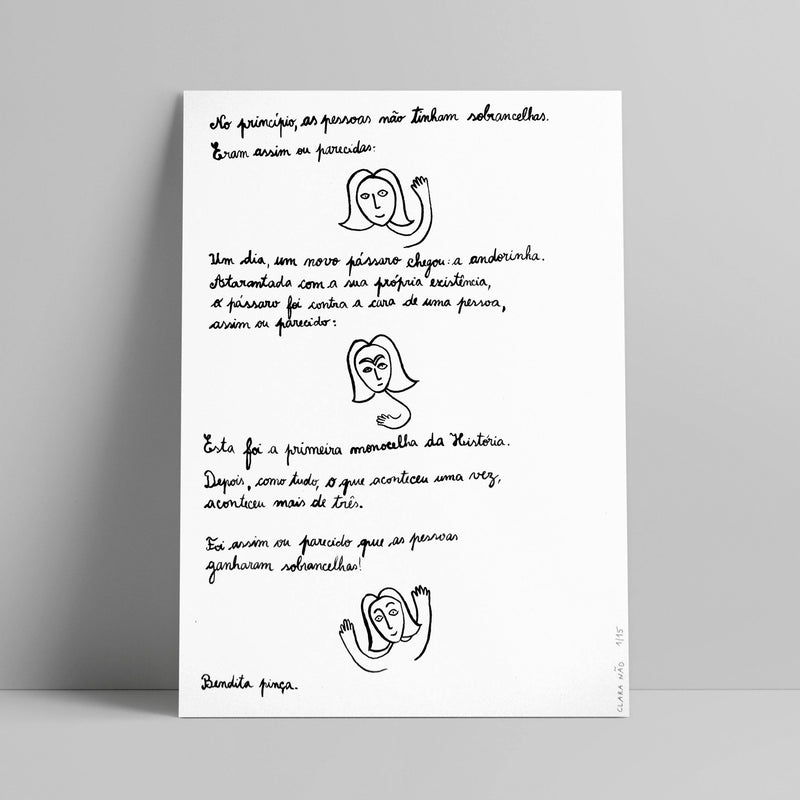 No princípio, as pessoas não tinham sobrancelhas.
Eram assim ou parecidas:
Um dia, um novo pássaro chegou: a andorinha.
Atarantada com a sua própria existência,
o pássaro foi contra a cara de uma pessoa,
assim ou parecido:
Esta foi a primeira monocelha da História.
Depois, como tudo, o que aconteceu uma vez,
aconteceu mais de três.
Foi assim ou parecido que as pessoas
ganharam sobrancelhas!
Bendita pinça.
CLARA NÃO 1/15